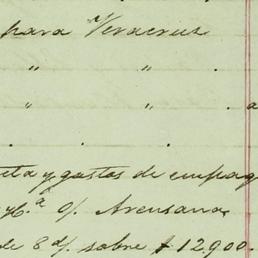 para Veracruz
" " .
" " . a
. . .
eta y gastos de empaq
y Ca. o/. Arensana
de 8 d/. sobre $ 12,900.